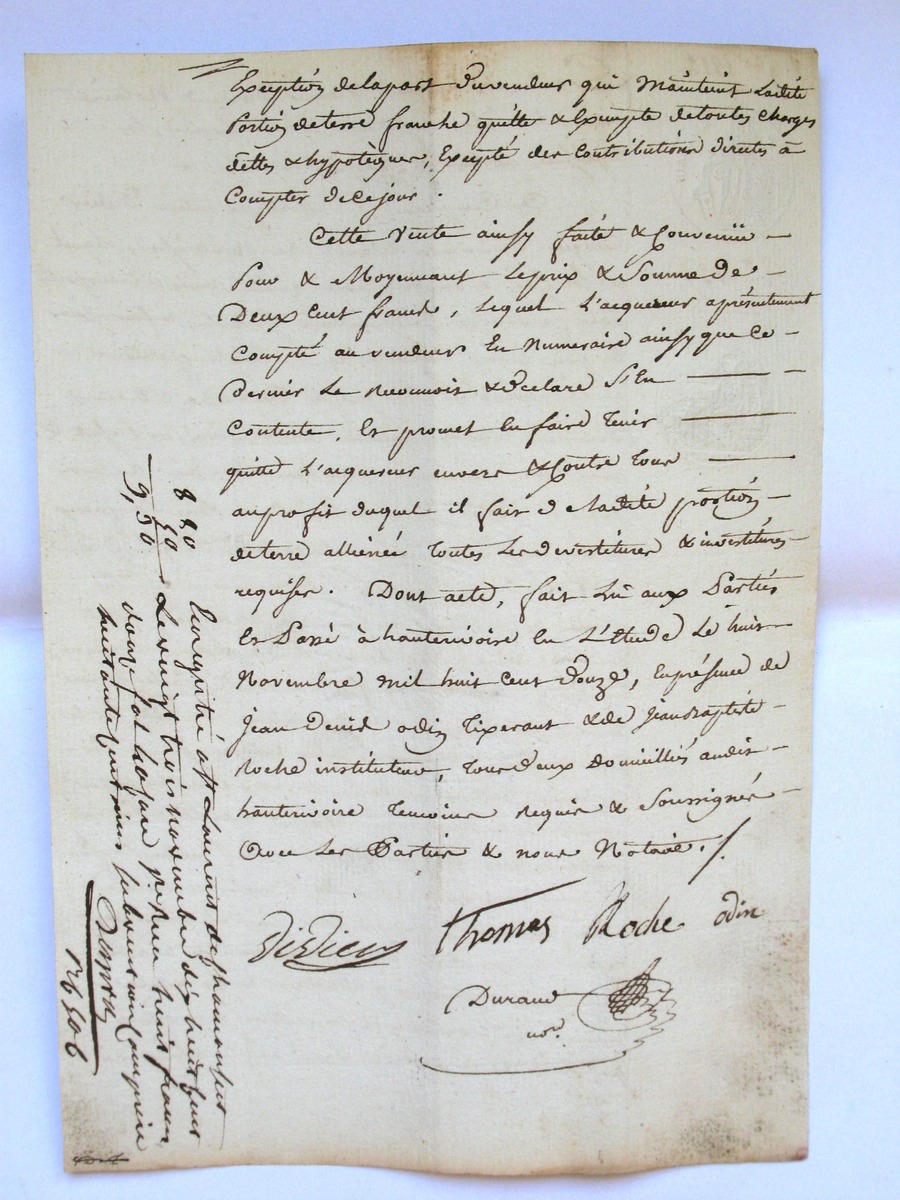 Exception de la part du vendeur qui Maintient Ladite
Portion de terre franche quitte & Exempte de toutes charges
dettes & hypotèques, Excepté des Contributions directes à
Compter de Ce jour.
Cette Vente ainsy faite & Convenüe -
Pour & Moyennant Le prix & Somme de -
Deux Cent francs, Lequel L'acquereur a présentement
Compté au vendeur En Numeraire ainsy que Ce -
Dernier Le reconnoit & déclare S'En
Contente, Et promet En faire tenir
quitte L'acquereur envers & Contre tous
au profit duquel il fait de Ladite portion -
de terre alliénée toutes Les devestitures & investitures -
requises. Dont acte, fait Lu aux Parties
Et Passé à hauterivoire En L'Etude Le huit
Novembre mil huit Cent Douze, En présence de
Jean Denis odin tixerant & de Jean Baptiste -
Roche instituteur, tous deux Domiciliés audit -
hauterivoire temoins requis & Soussignés -
Avec Les Parties & nous Notaire. /.
Didier Thomas Roche odin
Durand
nore.
8 80
80
9,50
Enregistré a St Laurent de chamousset
Le vingt trois novembre dix huit cent
douze fol. huit francs
quatre vingt